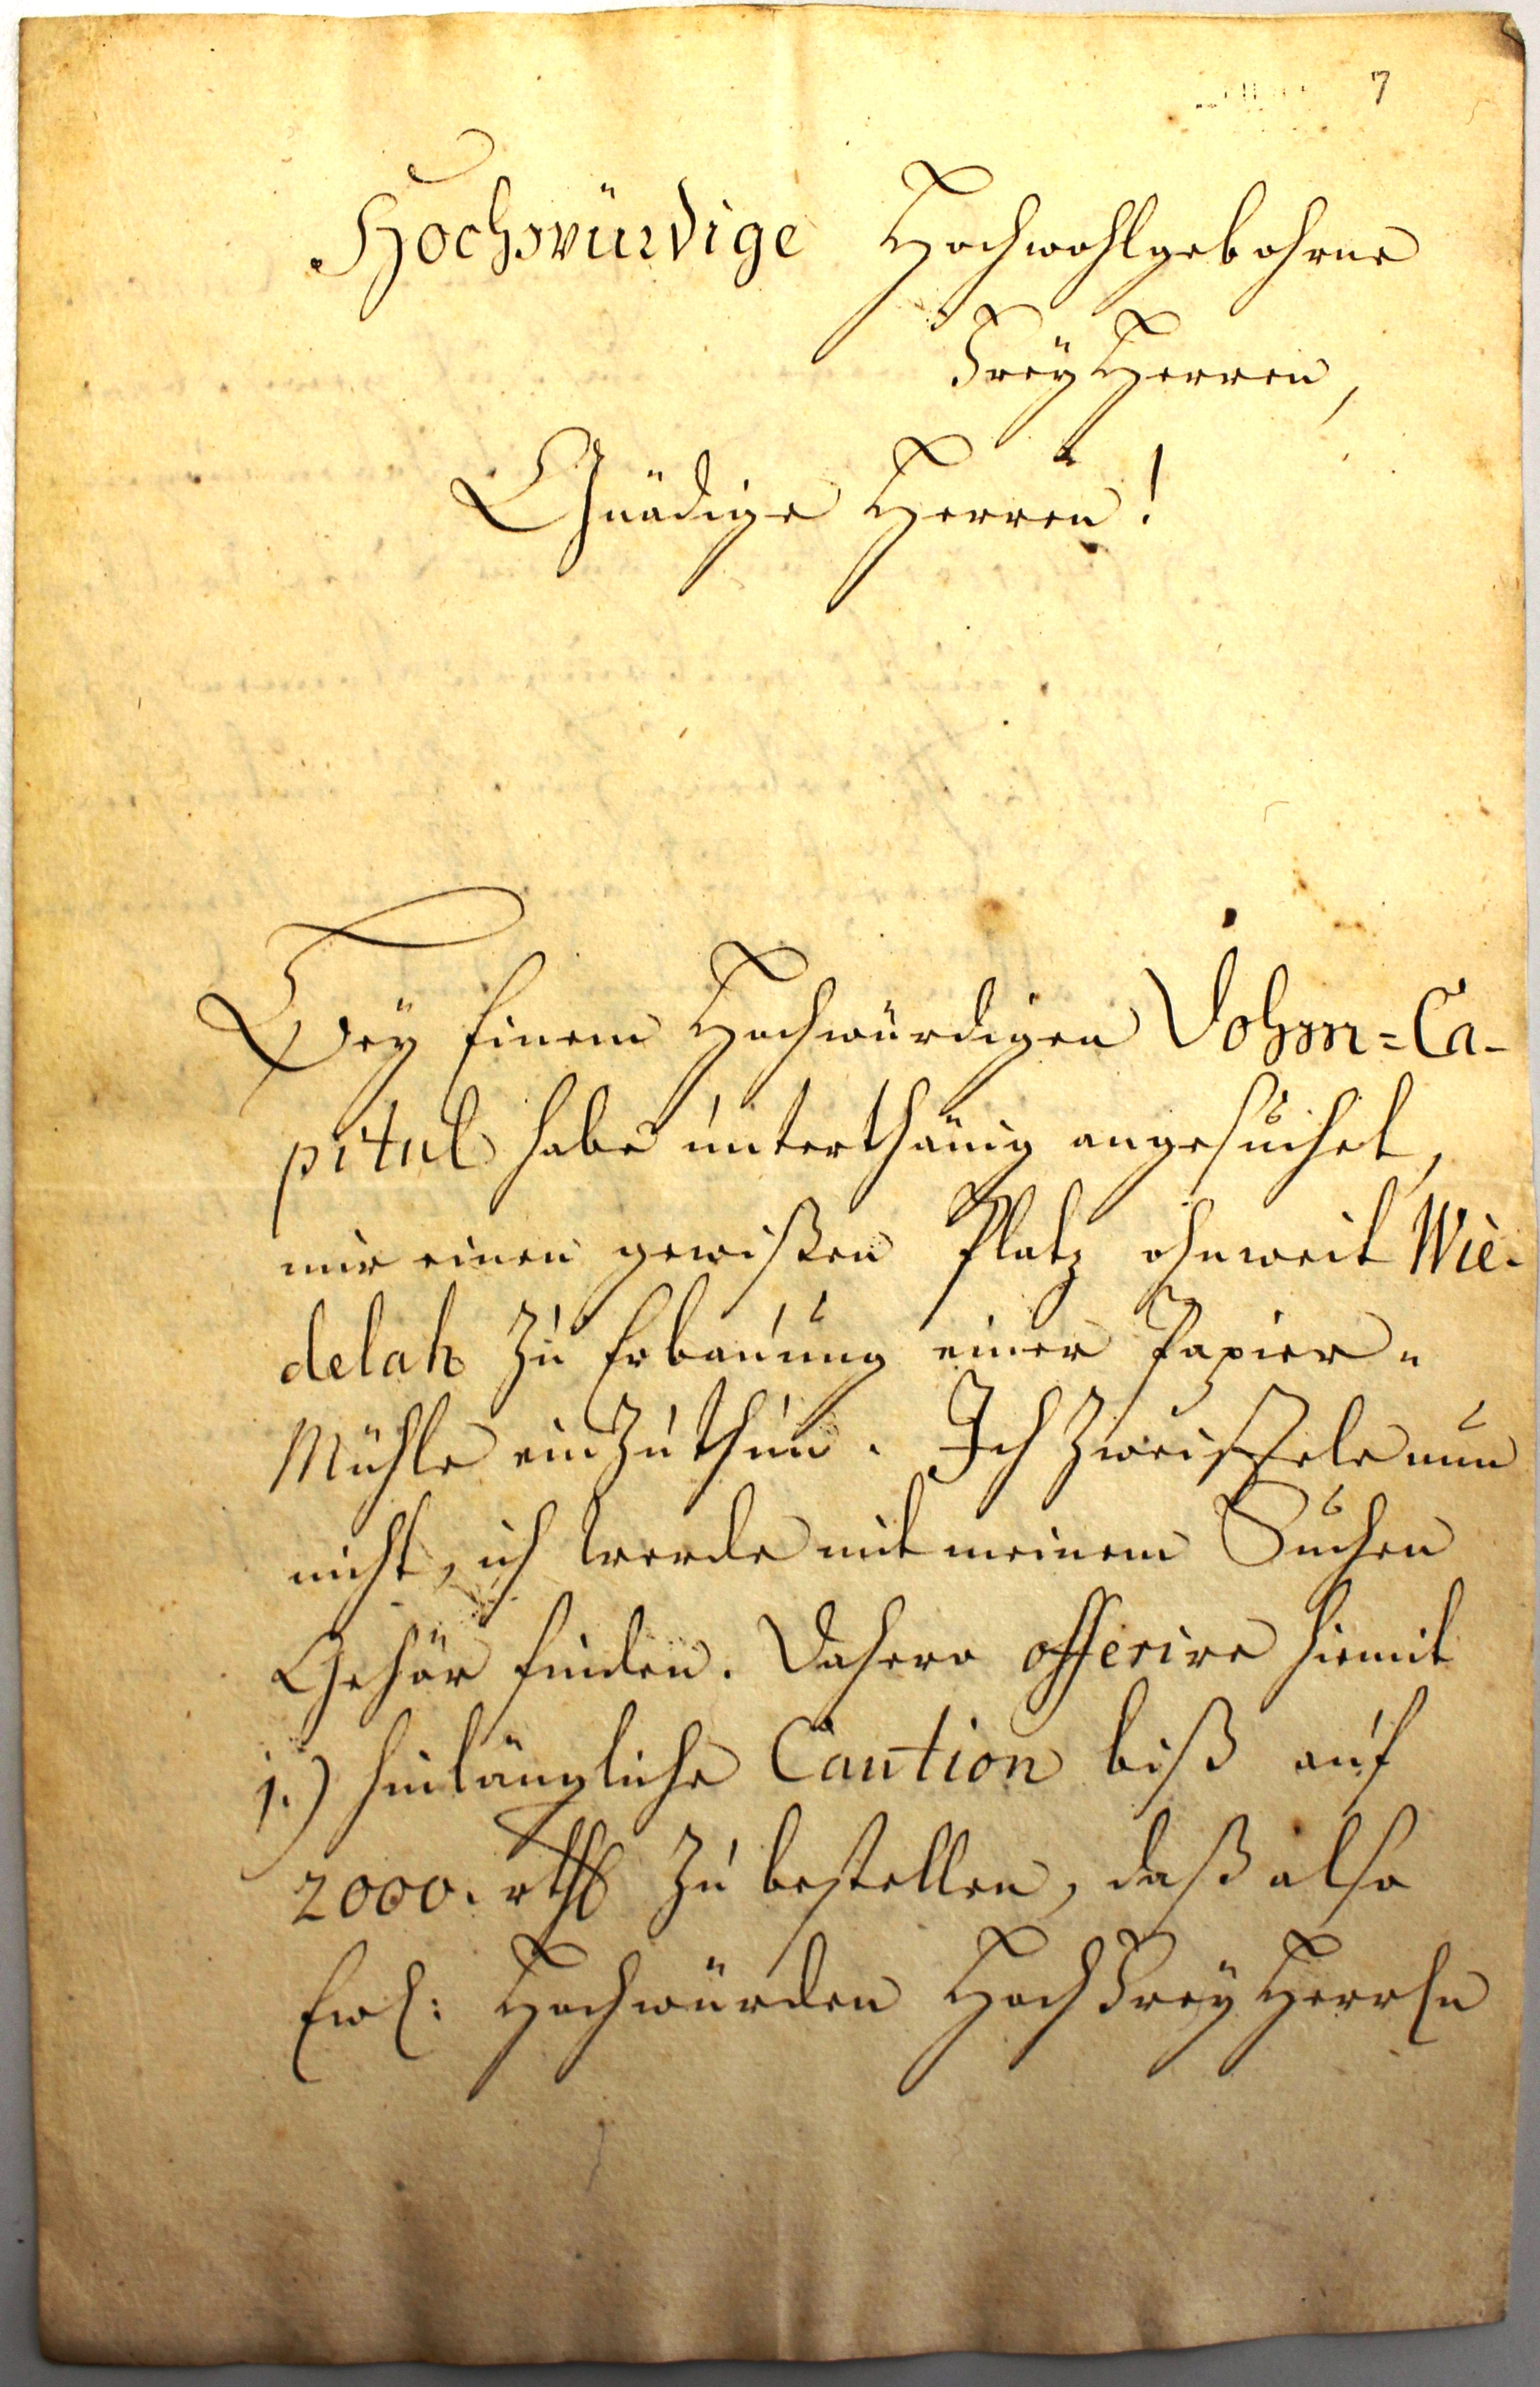 7
Hochwürdige Hochwohlgebohrne
FreyHerren,
Gnädige Herren!
Bey Einem Hochwürdigen Dohm=Ca-
pitul habe unterthänig angesuchet,
mir einen gewißen Platz ohnweit Wie-
delah zu Erbauung einer Papier=
Mühle einzuthun. Ich zweiffele nun
nicht, ich werde mit meinem Suchen
Gehör finden. Dahero offerire hiemit
1.) hinlängliche Caution biß auf
2000. rthl zu bestellen, daß also
Ewl: Hochwürden HochFreyHerrln